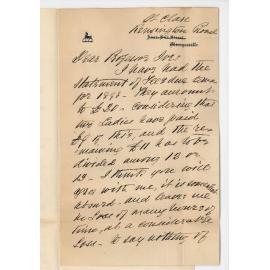 St Clare
Kensington Road
Dear Professor Ives
I have had the
statement of Fees due
for 1898 - They amount
to £30 - Considering that
two Ladies have paid
of this, and the re-
maining £11 has to be
divided among 12 or
13 - I think you will
agree with me, it is somewhat
absurd - and leaves me
the loser of many hours of
time, at a considerable
loss - to say nothing of